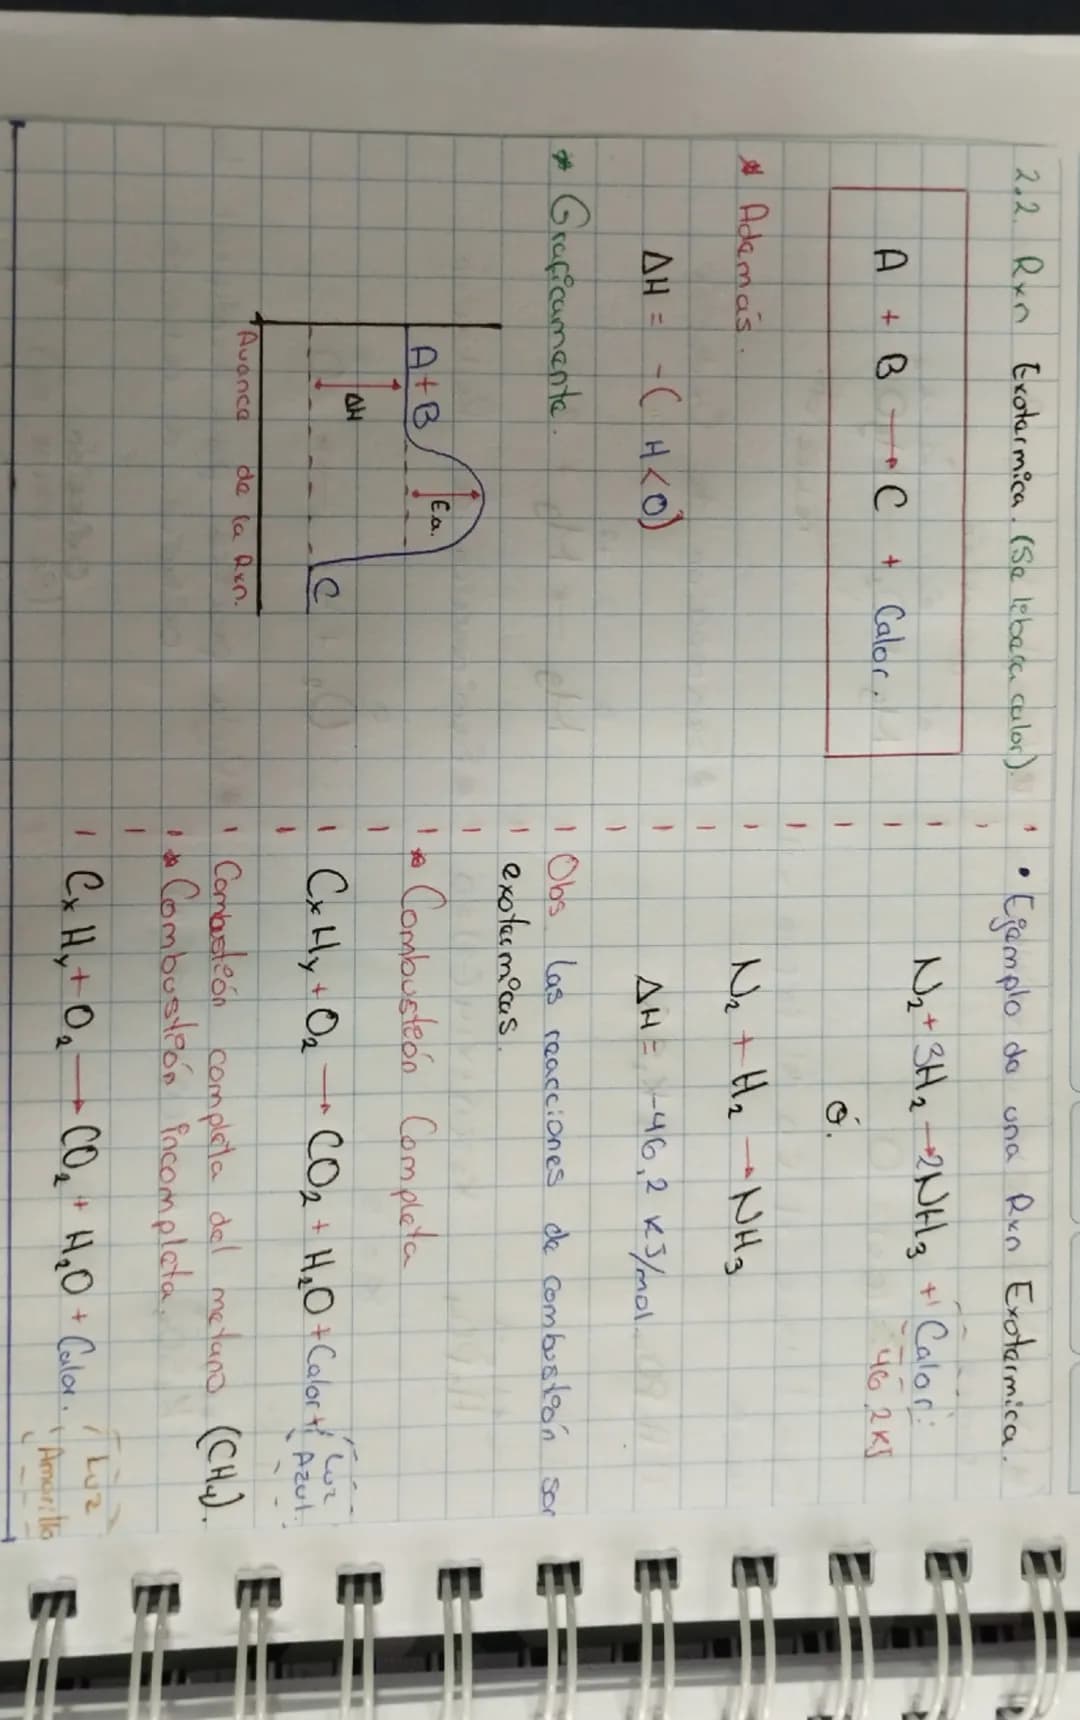 2.2. Rxn Exotermica. (Se lebera calor).
A + B → C + Calor.
* Además.
ΔH = -( H<0)
* Graficamente.
A+B
Ea.
ΔH
C
Avance de la Rxn.
• Ejemplo de una Rxn Exotermica.
N₂ + 3H₂ → 2NH₃ + Calor:
46,2 KJ
ó.
N₂ + H₂ → NH₃
ΔH = -46,2 KJ/mol.
Obs. Las reacciones de combustión son
exotermicas.
* Combustión Completa
CxHy + O₂ → CO₂ + H₂O + Calor + Luz
Azul.
Combustión completa del metano (CH₄).
* Combustión incompleta.
CxHy + O₂ → CO₂ + H₂O + Calor. Luz
Amarilla